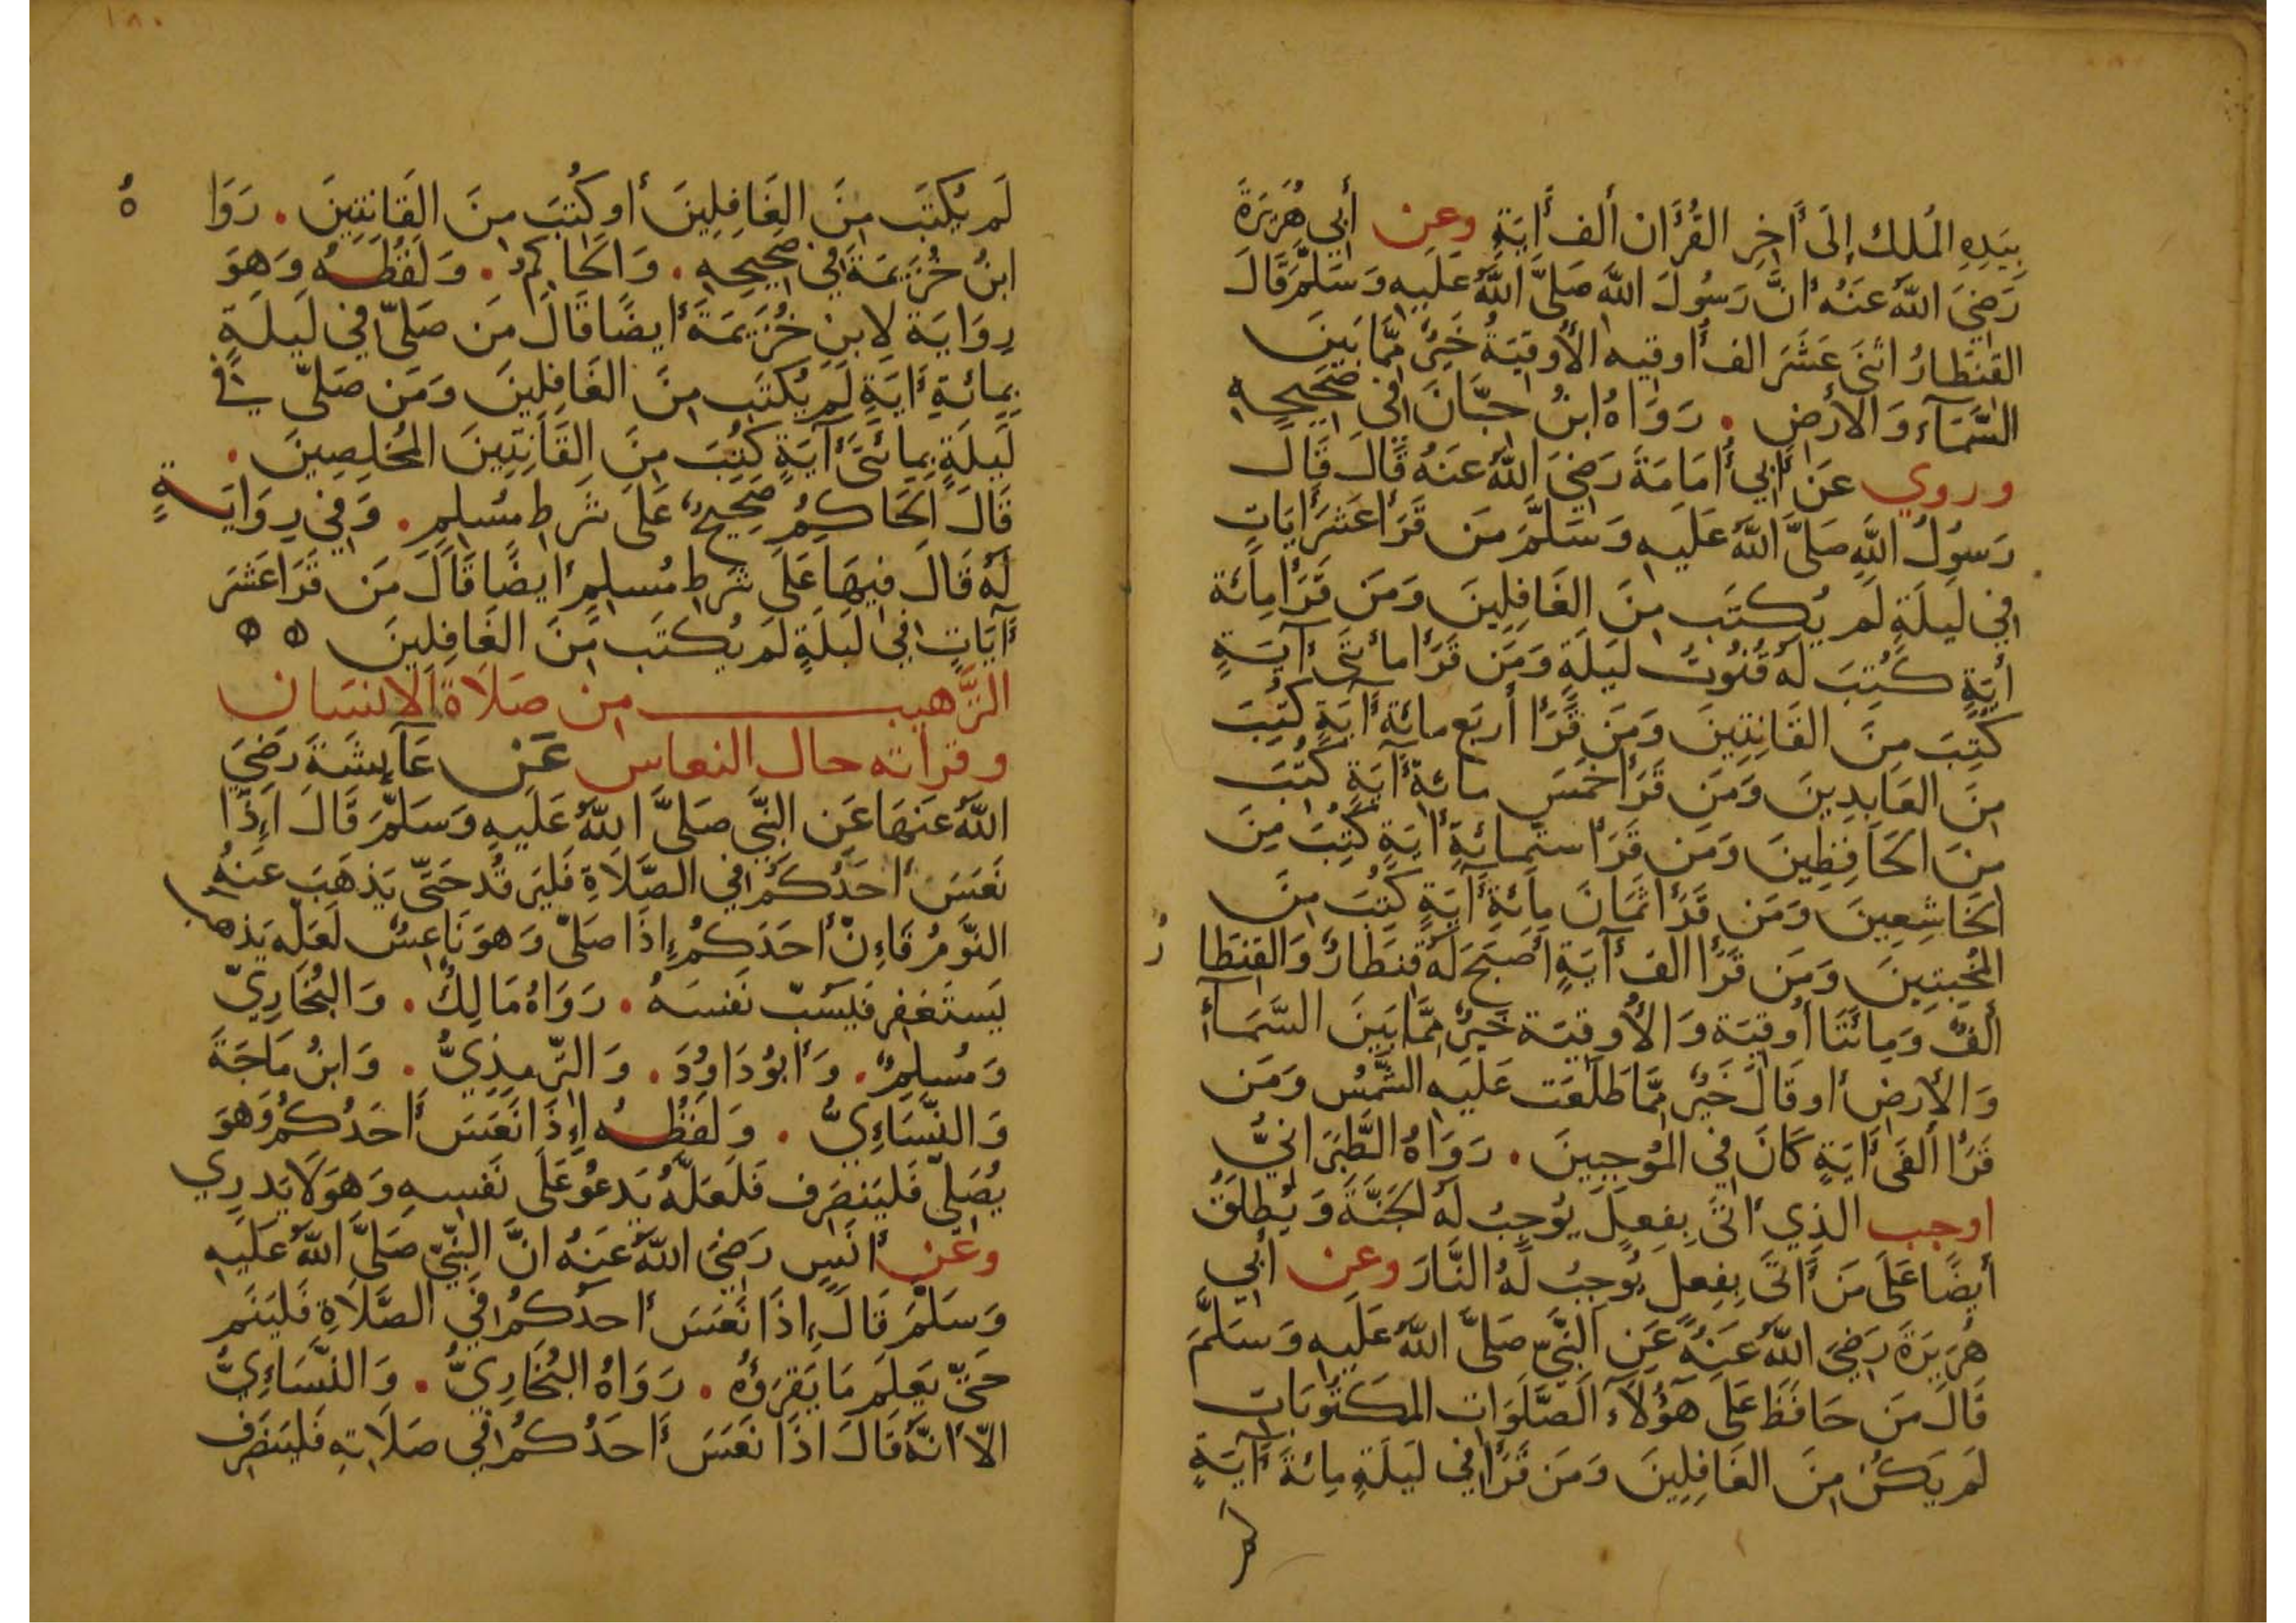 بِيَدِهِ المُلك إِلَى أَخِرِ القُرأَن ألف أَيَةٍ وعن أَبي هُرَيرَةَ
رَضِيَ اللهُ عَنهُ أنَّ رَسُولَ الله صَلَّى اللهُ عَلَيهِ وَسَلَّمَ قَالَ
القِنطَارُ اثنَى عَشَرَ الف أُوقيه الأُوقِيَةُ خَيرٌ مِّمَّا بَينَ
السَّمَآءِ وَالأرضِ . رَوَاهُ ابنُ حِبَّانَ فِي صَحِيحِهِ
وروي عَن أَبِي أُمَامَةَ رَضِيَ اللهُ عَنهُ قَالَ قَالَ
رَسُولُ اللهِ صَلَّى اللهُ عَلَيهِ وَسَلَّمَ مَن قَرَأ عَشرَ أيَاتٍ
فِي لَيلَةٍ لَم يُكتَب مِنَ الغَافِلِينَ وَمَن قَرَأ مِائَة
أيَةٍ كُتِبَ لَهُ قُنُوتُ لَيلَةٍ وَمَن قَرَأ مائتَى أيَةٍ
كُتِبَ مِنَ القَانِتِينَ وَمَن قَرَأ أَربَع مائة أيَةٍ كُتِبَ
مِنَ العَابِدِينَ وَمَن قَرَأ خَمسَ مائة أيَةٍ كُتِبَ
مِنَ الحَافِظِينَ وَمَن قَرَأ ستّمِائَةِ أيَةٍ كُتِبَ مِنَ
الخَاشِعِينَ وَمَن قَرَأ ثَمَانَ مِائَةِ أيَةٍ كُتِبَ مِنَ
المُخبِتِينَ وَمَن قَرَأ الفَ أيَةٍ أصبَحَ لَهُ قِنطَارٌ وَالقِنطَا رُ
أَلفٌ وَمِائَتَا أُوقِيَة وَالأُوقِيَة خَيرٌ مِّمَّا بَينَ السَّمَآءِ
وَالأرضِ أو قَالَ خَيرٌ مِّمَّا طَلَعَت عَلَيهِ الشَّمسُ وَمَن
قَرَأ ألفَى أيَةٍ كَانَ فِي المُوجِبِينَ . رَوَاهُ الطَّبَرَانِيُّ
اوجب الذِي أتَى بِفِعلٍ يُوجِبُ لَهُ الجَنَّةَ وَيُطلَقُ
أيضًا عَلَى مَن أتَى بِفِعلٍ يُوجِبُ لَهُ النَّارَ وعن أبي
هُرَيرَةَ رَضِيَ اللهُ عَنهُ عَنِ النَّبيِّ صَلَّى اللهُ عَلَيهِ وَسَلَّمَ
قَالَ مَن حَافَظَ عَلَى هَؤُلَآءِ الصَّلَوَات المَكتُوبَاتِ
لَم يَكُن مِنَ الغَافِلِينَ وَمَن قَرَأ فِي لَيلَةٍ مِائَةَ أيَةٍ
لم
١٨٠
لَم يُكتَب مِنَ الغَافِلِينَ أو كُتِبَ مِنَ القَانِتِينَ . رَوَا هُ
ابنُ خُزَيمَةَ فِي صَحِيحِهِ . وَالحَاكِمُ . وَلَفظُهُ وَهِوَ
رِوَايَة لِابنِ خُزَيمَةَ أيضًا قَالَ مَن صَلَّى فِي لَيلَةٍ
بِمِائَةِ أيَةٍ لَم يُكتَب مِنَ الغَافِلِينَ وَمَن صَلَّى فِي
لَيلَةٍ بِمِائَتَى آيَةٍ كُتِبَ مِنَ القَانِتِينَ المُخلِصِينَ .
قَالَ الحَاكِمُ صَحِيحٌ عَلَى شَرطِ مُسلِمٍ . وَفِي رِوَايَةٍ
لَهُ قَالَ فِيهَا عَلَى شَرطِ مُسلِمٍ أيضًا قَالَ مَن قَرَأ عَشرَ
أيَاتٍ فِي لَيلَةٍ لَم يُكتَب مِنَ الغَافِلِينَ ۵ ۵
الترَّهيب من صَلَاة الانسَان
وقرأته حال النعاس عَن عَآئِشَةَ رَضِيَ
اللهُ عَنهَا عَنِ النَّبيِّ صَلَّى اللهُ عَلَيهِ وَسَلَّمَ قَالَ إِذَا
نَعَسَ أحَدُكُم فِي الصَّلَاةِ فَليَرقُد حَتَّى يَذهَبَ عَنهُ
النَّومُ فَإِنّ أحَدَكُم إِذَا صَلَّى وَهوَ نَاعِسٌ لَعَلّه يَذهب
يَستَغفِر فَيَسُبّ نَفسَهُ . رَوَاهُ مَالِكٌ . وَالبُخَارِيّ
وَمُسلِمٌ . وَأبُو دَاوُدَ . وَالتِّرمِذِيُّ . وَابنُ مَاجَةَ
وَالنَّسَاءِيُّ . وَلَفظُهُ إِذَا نَعَسَ أحَدُكُم وَهوَ
يُصَلِّي فَليَنصَرِف فَلَعَلَّهُ يَدعُو عَلَى نَفسِهِ وَهوَ لَا يَدرِي
وعن أنَسٍ رَضِيَ اللهُ عَنهُ انَّ النبِيّ صَلَّى اللهُ عَلَيهِ
وَسَلَّمَ قَالَ إِذَا نَعَسَ أحدُكُم فِي الصَّلَاةِ فَليَنَم
حَتّى يَعلَم مَا يَقرَؤُه . رَوَاهُ البُخَارِيُّ . وَالنَّسَاءِيُّ
الّا أنَّهُ قَالَ اذَا نَعَسَ أحَدُكُم فِي صَلَاتِهِ فَليَنصَرِف